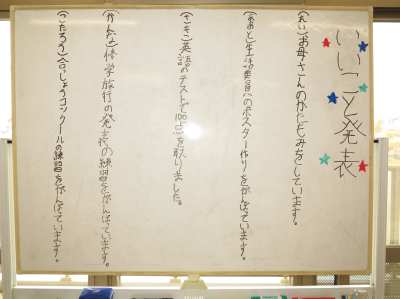 いいこと発表
(れい)お母さんのかたもみをしています。
(あおと)生活委員会のポスター作りをがんばっています。
(さき)英語のテストで100点を取りました。
(かんた)修学旅行の発表の練習をがんばっています。
(こたろう)合しょうコンクールの練習をがんばっています。